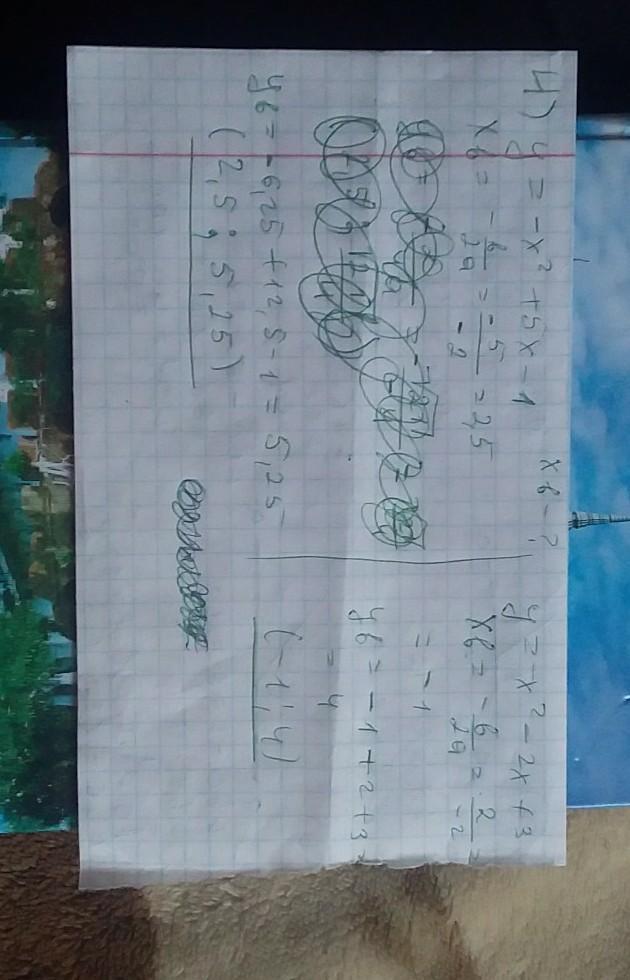 4) y = -x² + 5x - 1 xв - ?
xв = - в/2a = -5/-2 = 2,5
yв = -6,25 + 12,5 - 1 = 5,25
(2,5 ; 5,25)
y = -x² - 2x + 3
xв = - в/2a = 2/-2 =
= -1
yв = -1 + 2 + 3 =
= 4
(-1; 4)